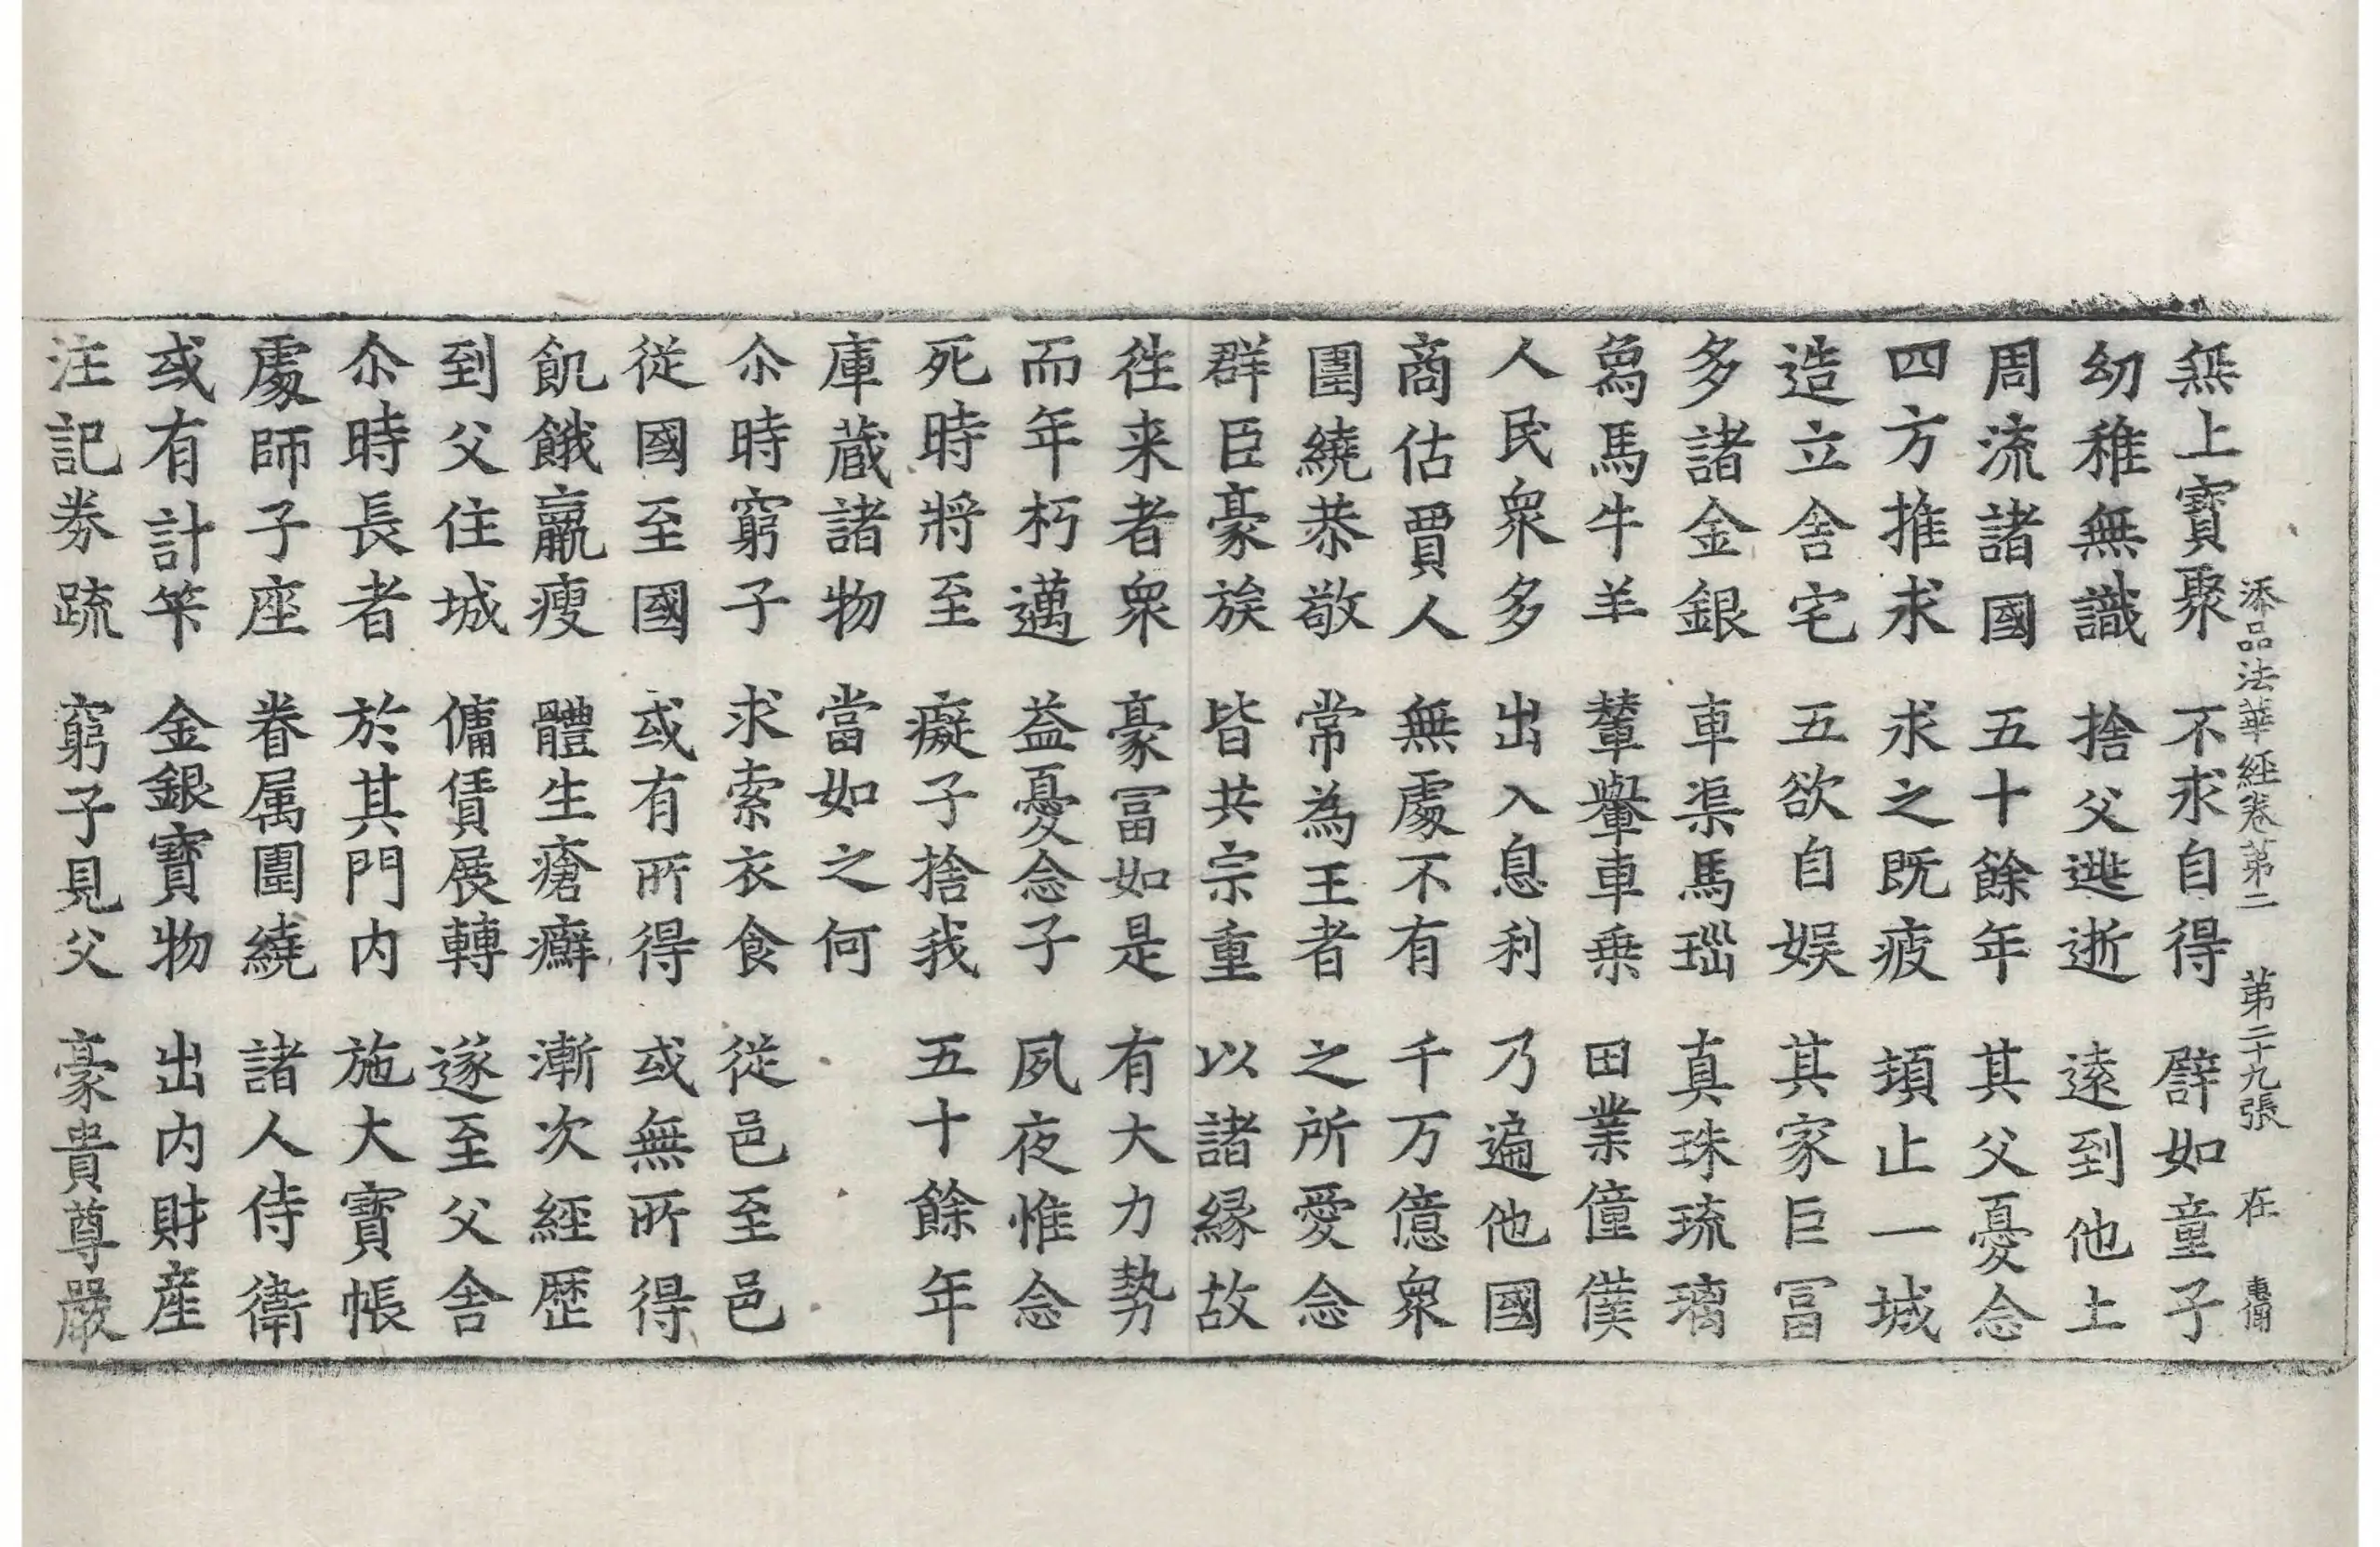 添品法華経卷第二　第二十九張　在
無上寶聚　不求自得　譬如童子
幼稚無識　捨父逃逝　遠到他土
周流諸國　五十餘年　其父憂念
四方推求　求之既疲　頓止一城
造立舍宅　五欲自娛　其家巨冨
多諸金銀　車渠馬瑙　真珠琉璃
象馬牛羊　輦轝車乗　田業僮僕
人民衆多　出入息利　乃遍他國
商估賈人　無處不有　千万億衆
圍繞恭敬　常為王者　之所愛念
群臣豪族　皆共宗重　以諸緣故
徃来者衆　豪冨如是　有大力勢
而年朽邁　益憂念子　夙夜惟念
死時將至　癡子捨我　五十餘年
庫藏諸物　當如之何
尒時窮子　求索衣食　從邑至邑
從國至國　或有所得　或無所得
飢餓羸瘦　體生瘡癬　漸次經歷
到父住城　傭賃展轉　遂至父舍
尒時長者　於其門内　施大寶帳
處師子座　眷属圍繞　諸人侍衛
或有計筭　金銀寶物　出内財産
注記券疏　窮子見父　豪貴尊嚴